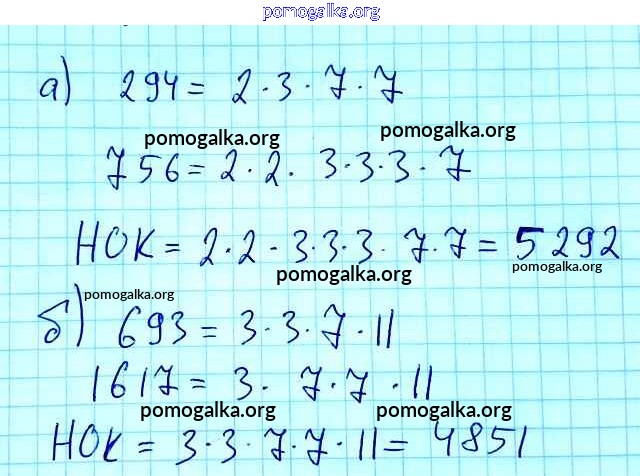 pomogalka.org
а) 294 = 2 · 3 · 7 · 7
pomogalka.org pomogalka.org
756 = 2 · 2 · 3 · 3 · 3 · 7
НОК = 2 · 2 - 3 · 3 · 3 · 7 · 7 = 5292
pomogalka.org pomogalka.org
pomogalka.org
б) 693 = 3 · 3 · 7 · 11
1617 = 3 · 7 · 7 · 11
pomogalka.org pomogalka.org
НОК = 3 · 3 · 7 · 7 · 11 = 4851